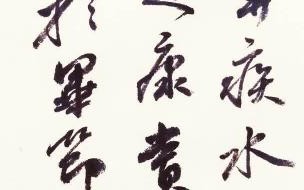 疾水
康貴
於畢節